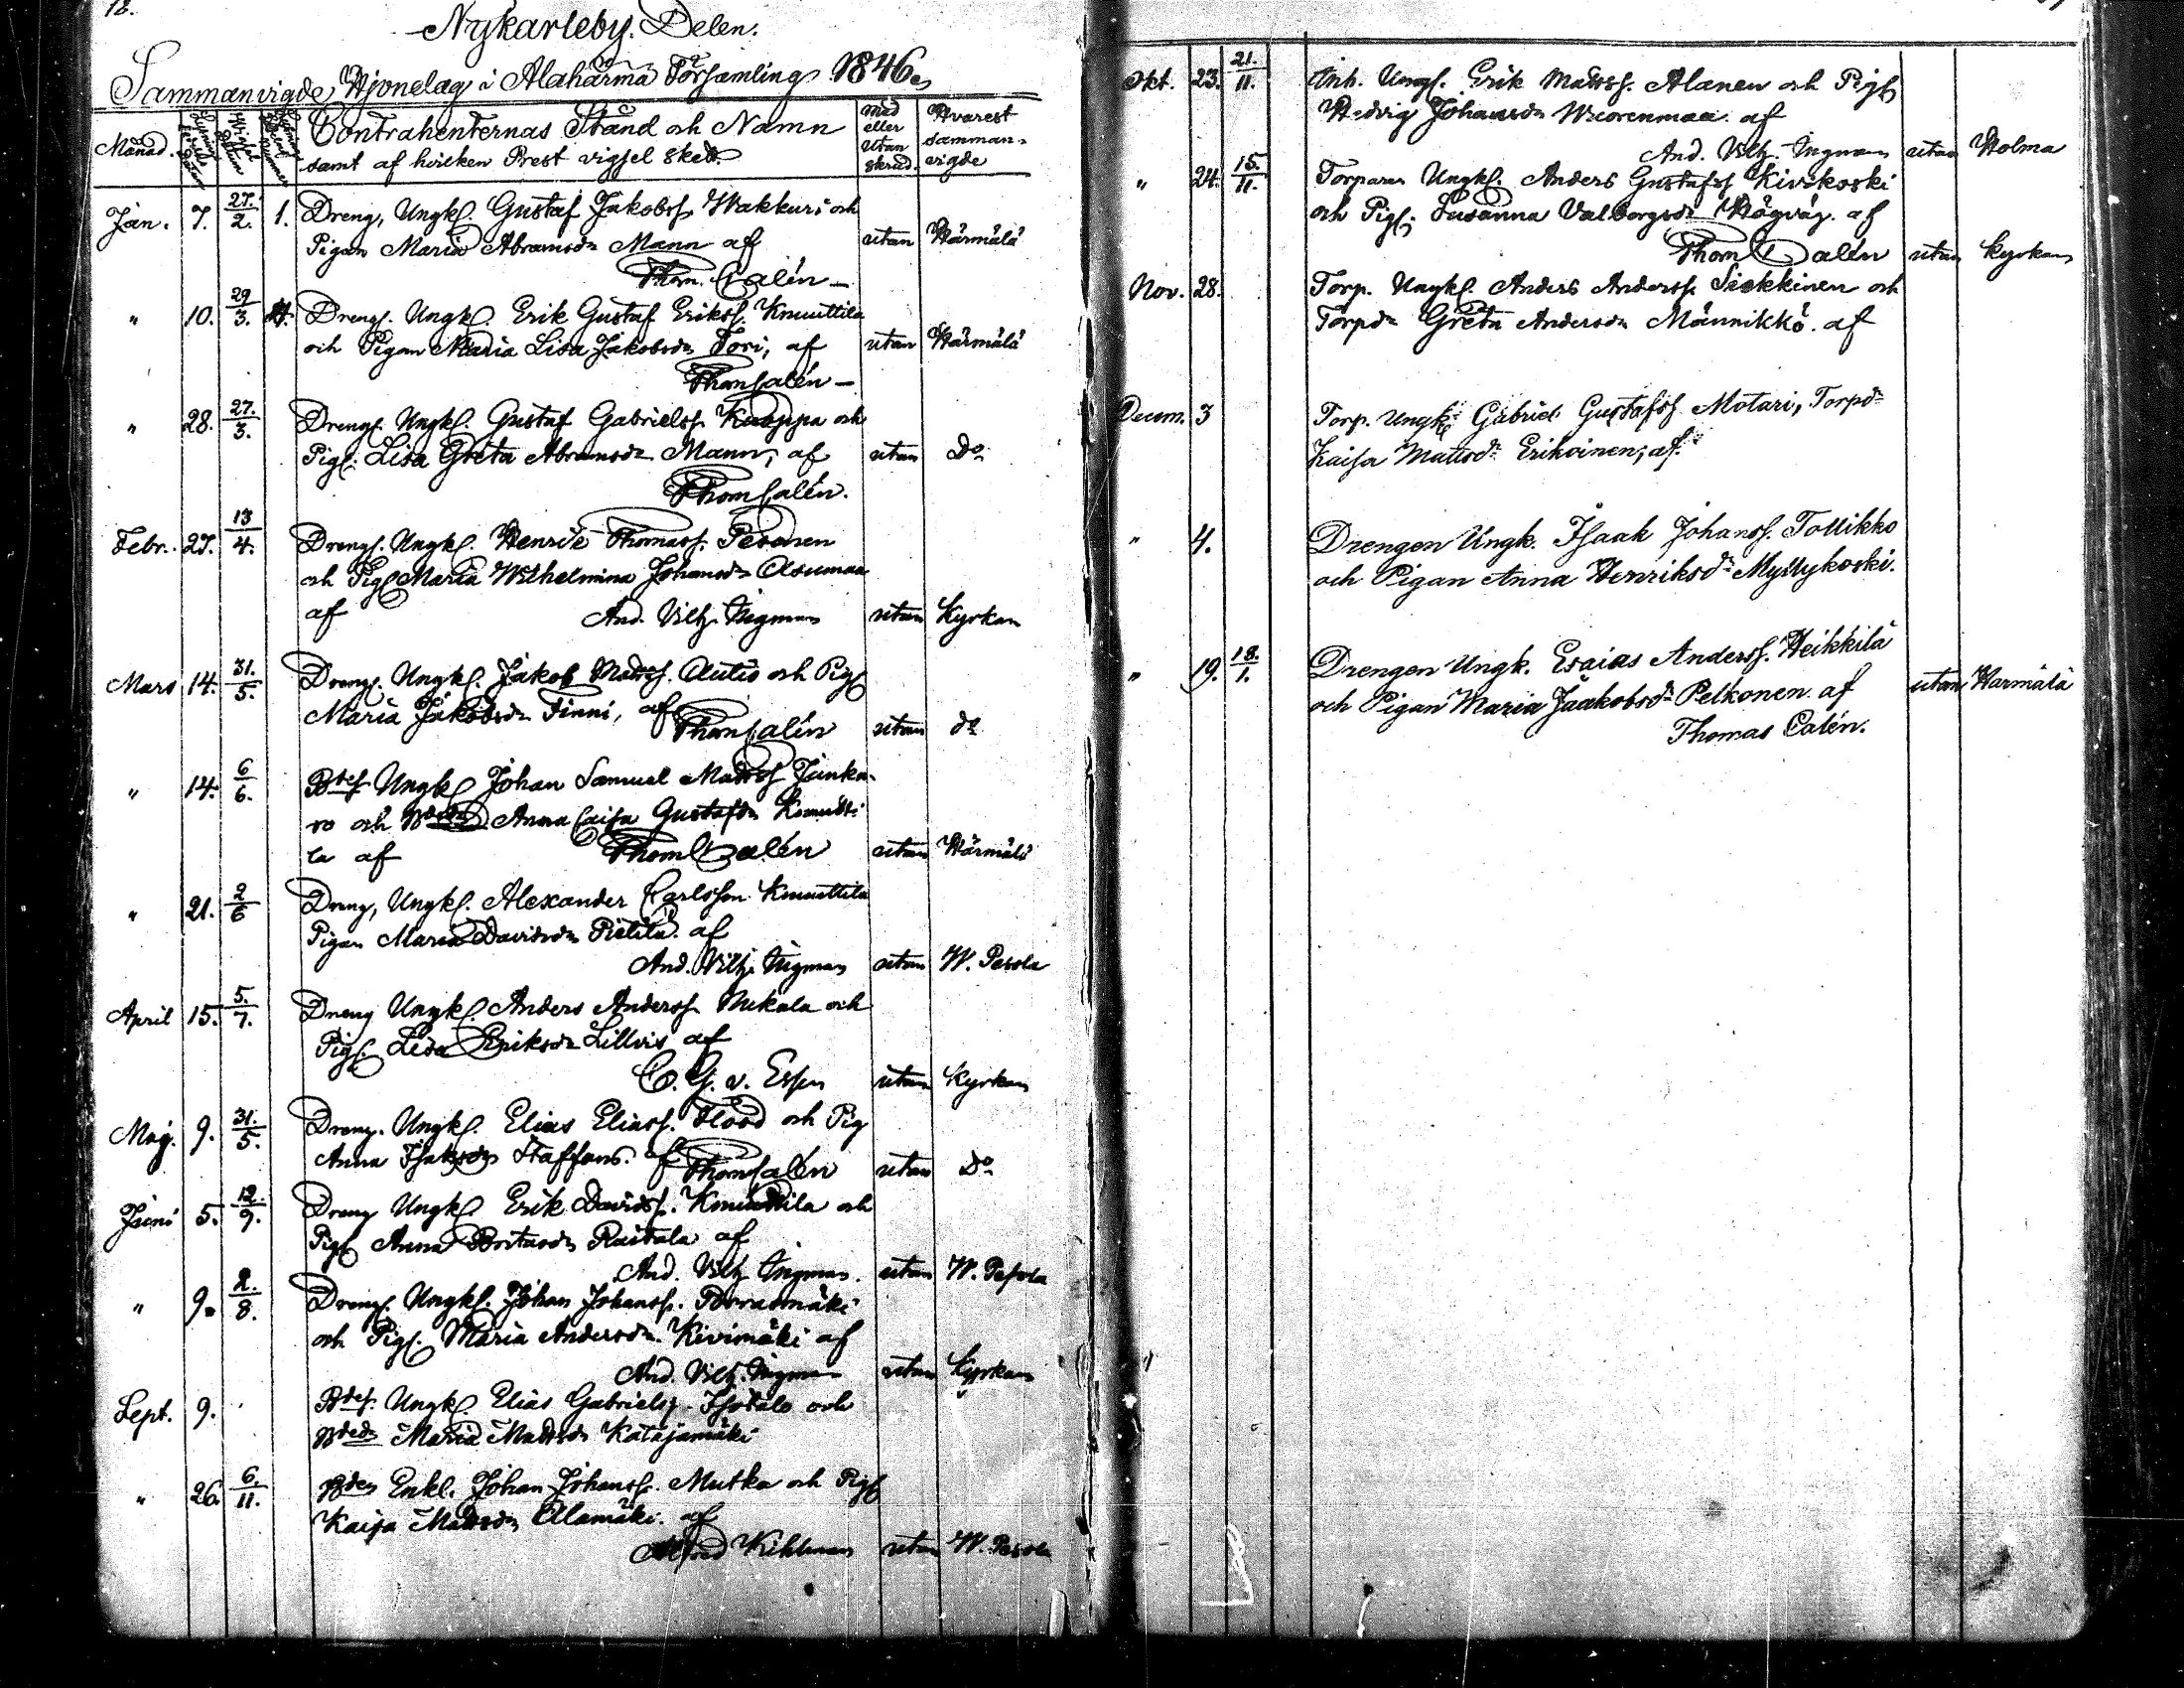 18.
Nykarleby Delen.
Sammanvigde Hjonelag i Alahärmä Församling 1846.
Månad. Contrahenternas Stånd och Namn med eller utan skrud. Hvarest samman-vigde
samt af hvilken Prest vigsel skedt.
Jan. 7. 27./2. 1. Dreng, Ungk. Gustaf Jakobss. Wakkuri och
Pigan Maria Abramsdr Mann af utan Härmälä
Thom. Calén
" 10. 29/3. Drengs. Ungk. Erik Gustaf Erikss. Knuuttila
och Pigan Maria Lisa Jakobsdr Tori, af utan Härmälä
Thom Calén
" 28. 27./3. Drengs. Ungk. Gustaf Gabrielss. Kaoppa och
Pigs. Lisa Greta Abramsdr Mann, af utan Do
Thom Calén.
Febr. 27. 13/4. Drengs. Ungk. Henrik Thomass. Pesonen
och Pigs Maria Wilhelmina Johansdr Asumaa
af And. Vilh. Ingman utan Kyrkan
Mars 14. 31./5. Drengs. Ungk. Jakob Matss. Autio och Pigs
Maria Jakobsdr Finni, af Thom Calén utan do
" 14. 6/6. Bdes Ungk Johan Samuel Matss Junka-
ro och Anna Caisa Gustafsdr Knuutti
la af Thom Calén utan Härmälä
" 21. 2/6 Dreng, Ungk. Alexander Carlsson Knuuttila
Pigan Maria Davidsdr Pietilä af
And. Vilh. Ingman utan W. Pesola
April 15. 5./7. Dreng Ungk Anders Anderss Nukala och
Pigs. Lisa Eriksdr Lillvis af
C. G. v. Essen utan Kyrkan
Maj. 9. 31./5. Dreng. Ungk. Elias Eliass. Flood och Pig
Anna Isaksdr Staffans. af Thom Calén utan Do
Juni 5. 12./9. Dreng Ungk Erik Davidss. Knuuttila och
Pigs Anna Britasdr Raitala af
And. Vilh Ingman. utan W. Pesola
" 9. 2./8. Drengs. Ungk. Johan Johanss. Porrasmäki
och Pigs. Maria Andersdr. Kivimäki af
And. Vilh. Ingman utan Kyrkan
Sept. 9. Bdes. Ungk Elias Gabrielss. Isotalo och
Bdedr Maria Mattsdr Katajamäki
" 26. 6./11. Bden Enkl. Johan Johanss. Mutka och Pigs
Kaisa Mattsdr Alamäki. af
Alfred Kihlman utan W. Pesola
Okt. 23. 21./11. Inh. Ungk. Erik Mattss. Alanen och Pigs
Hedvig Johansdr Wuorenmaa af
And. Vilh. Ingman utan Holma
" 24. 15./11. Torparen Ungk. Anders Gustafss Kivikoski
och Pigs. Susanna Valborgsdr Högväg. af
Thom Calén utan Kyrkan
Nov. 28. Torp. Ungk. Anders Anderss. Siekkinen och
Torpdr Greta Andersdr Männikkö. af
Decem. 3 Torp. Ungk. Gabriel Gustafss Motari, Torpdr
Kaisa Mattsdr Erikoinen; af.
" 4. Drengen Ungk. Isaak Johanss. Tollikko
och Pigan Anna Henriksdr Myllykoski.
" 19. 18./1. Drengen Ungk. Esaias Anderss. Heikkilä
och Pigan Maria Jaakobsdr Pelkonen af utan Harmälä
Thomas Calén.